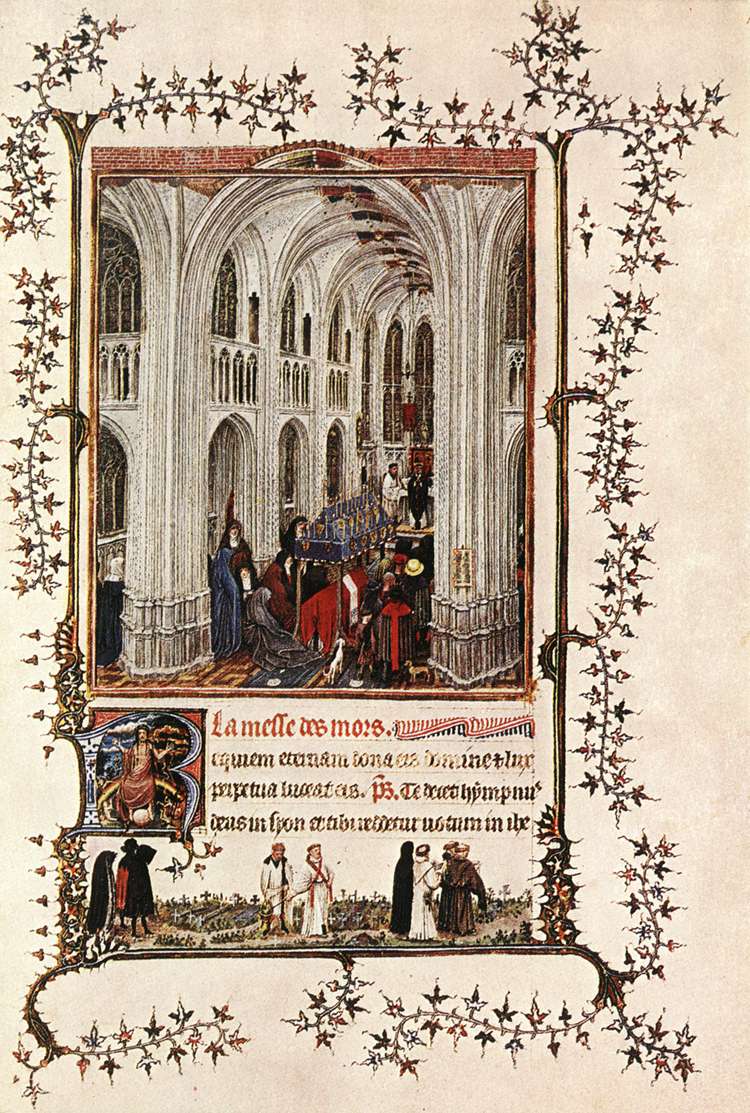 La messe des mors.
Requiem eternam dona eis domine ⁊ lux
perpetua luceat eis. Ps. Te decet hympnus
deus in syon et tibi reddetur uotum in ihe